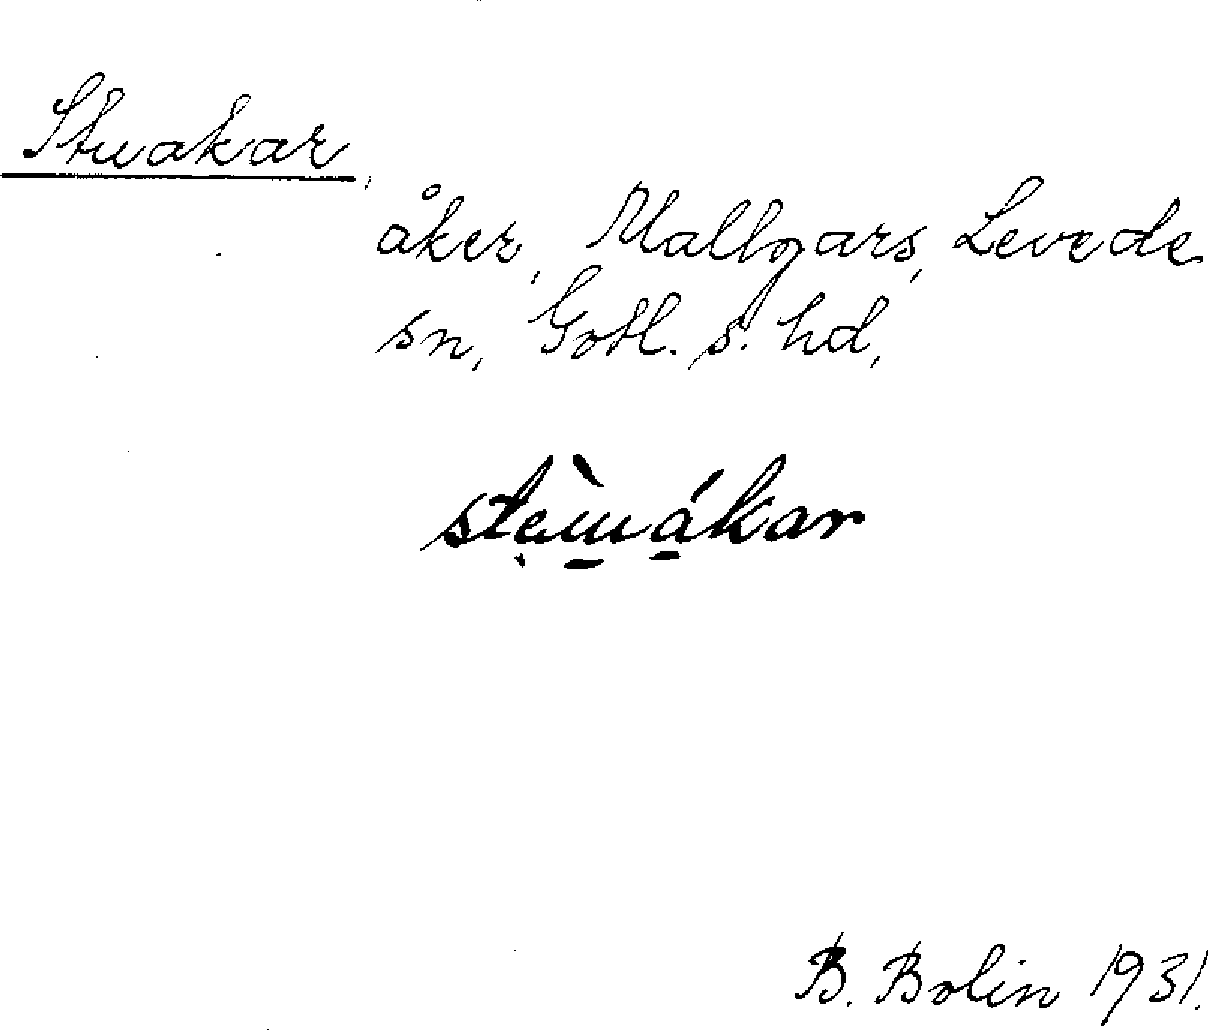 Stuakar,
åker, Mallgars, Levede
sn, Gotl. s. hd,
B. Bolin 1931.